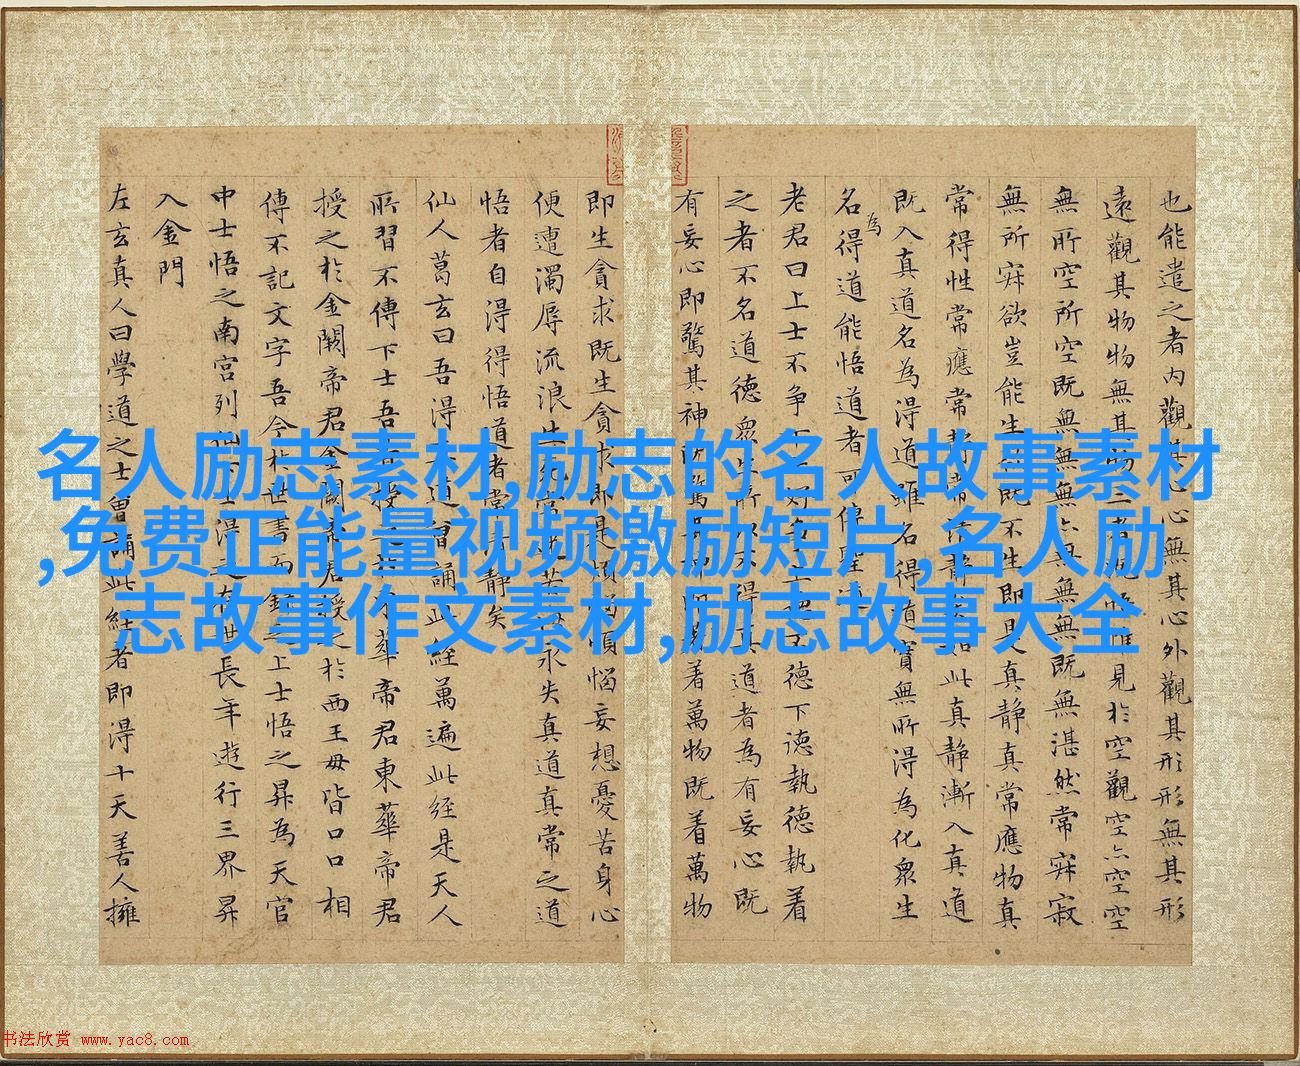 也能遣之者內觀其心心無其心外觀其形形無其形
遠觀其物物無其物三者既悟唯見於空觀空亦空空
無所空所空既無無無亦無無無既無湛然常寂寂
無所寂欲豈能生欲既不生即是真静真常應物真
常得性常應常静常清静矣如此真静漸入真道
既入真道名為得道雖名得道實無所得為化衆生
名為得道能悟道者可傳聖道
老君曰上士不争下士好争上德不德下德執德執着
之者不名道德衆生所以不得真道者為有妄心既
有妄心即驚其神既驚其神即着萬物既着萬物
即生貪求既生貪求即是煩惱煩惱妄想憂苦身心
便遭濁辱流浪生死常沉苦海永失真道真常之道
悟者自得得悟道者常清静矣
仙人葛玄曰吾得真道曾誦此經萬遍此經是天人
所習不傳下士吾昔授之於東華帝君東華帝君
授之於金闕帝君金闕帝君授之於西王母皆口口相
傳不記文字吾今於世書而錄之上士悟之昇為天官
中士悟之南宫列仙下士得之在世長年遊行三界昇
入金門
左玄真人曰學道之士曾誦此經者即得十天善人擁
名人励志素材,励志的名人故事素材
,免费正能量视频激励短片,名人励
志故事作文素材,励志故事大全
书法欣赏 www.yac8.com